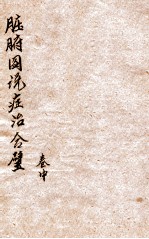 脏腑图说症治合璧
卷中